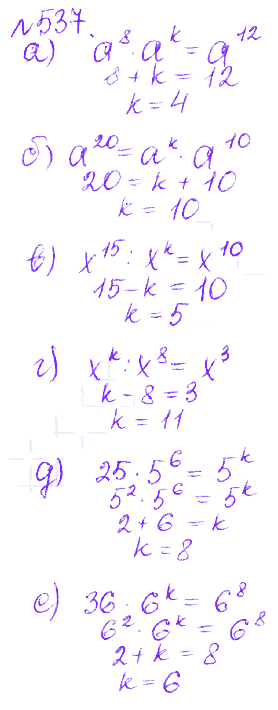 №537.
а) a⁸ · aᵏ = a¹²
8 + k = 12
k = 4
б) a²⁰ = aᵏ · a¹⁰
20 = k + 10
k = 10
в) x¹⁵ : xᵏ = x¹⁰
15 - k = 10
k = 5
г) xᵏ : x⁸ = x³
k - 8 = 3
k = 11
д) 25 · 5⁶ = 5ᵏ
5² · 5⁶ = 5ᵏ
2 + 6 = k
k = 8
е) 36 · 6ᵏ = 6⁸
6² · 6ᵏ = 6⁸
2 + k = 8
k = 6